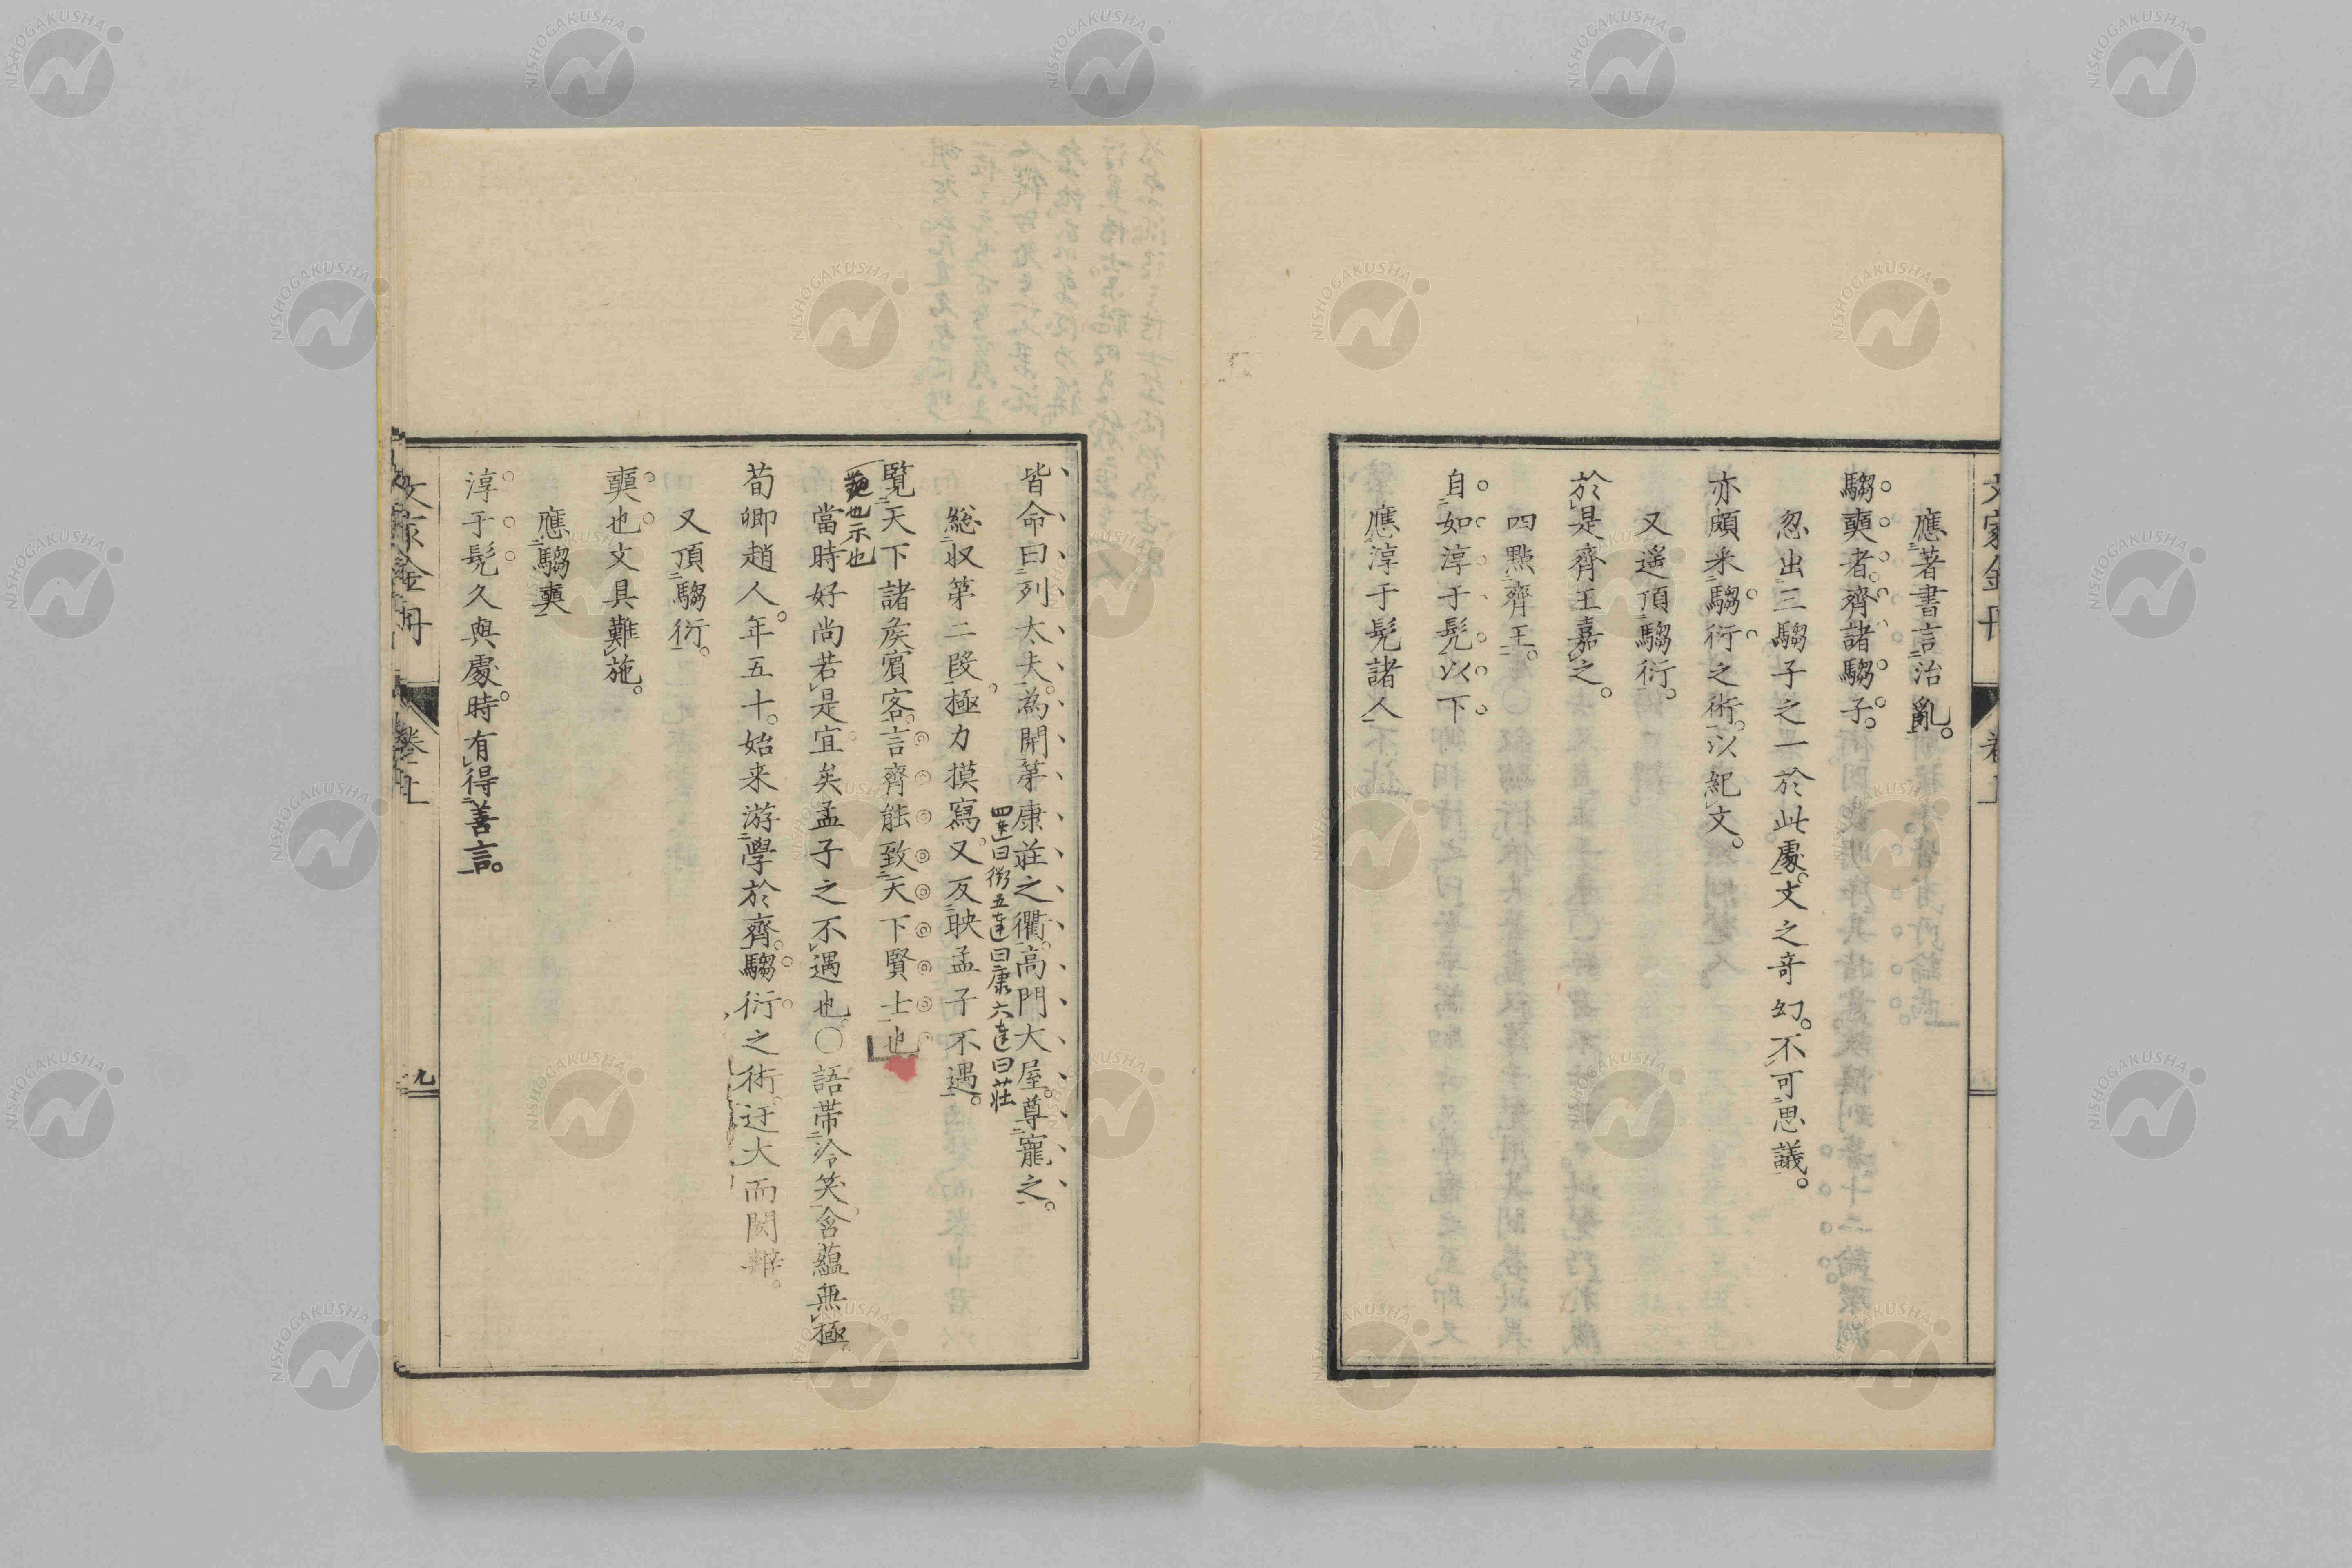 應著書言治亂。
騶奭者。齊諸騶子。
忽出三騶子之一於此處。文之奇幻。不可思議。
亦頗采騶衍之術。以紀文。
又遙頂騶衍。
於是齊王嘉之。
四點齊王。
自如淳于髡以下
應淳于髡諸人
皆命曰列大夫。為開第康莊之衢。高門大屋。尊寵之。
四達曰衢五達曰康六達曰莊
総収第二段。極力摸寫。又反映孟子不遇。
覽天下諸侯賓客。言齊能致天下賢士也
也示也
當時好尚若是宜矣孟子之不遇也。〇語帯冷笑。含蘊無極。
荀卿趙人。年五十。始来游學於齊。騶衍之術。迂大而閎辯。
又頂騶衍。
奭也文具難施。
應騶奭
淳于髡久與處。時有得善言。
文家金丹 卷上
九
NISHOGAKUSHA